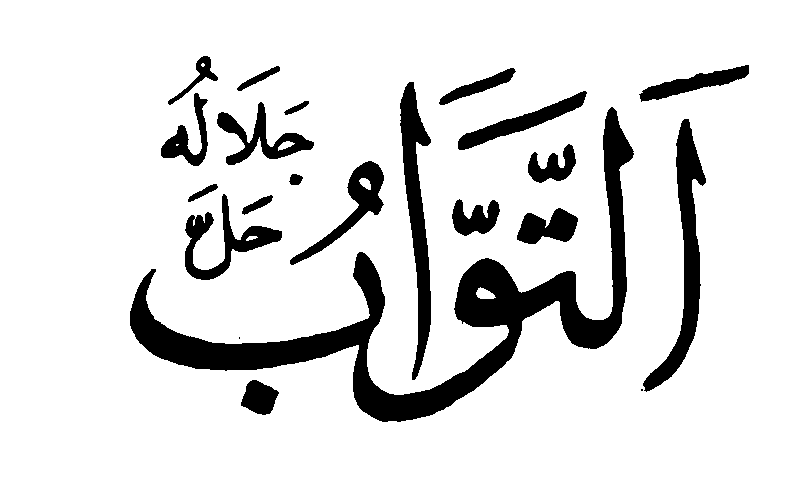 اَلتَّوَّابُ
جَلَّ
جَلَالُهُ